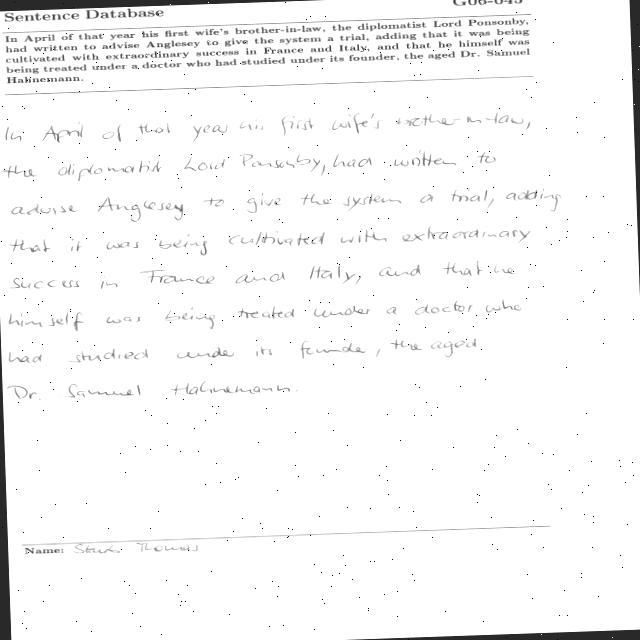 Sentence Database
In April of that year his first wife's brother-in-law, the diplomatist Lord Ponsonby,
had written to advise Anglesey to give the system a trial, adding that it was being
cultivated with extraordinary success in France and Italy, and that he himself was
being treated under a doctor who had studied under its founder, the aged Dr. Samuel
Hahnemann.
In April of that year his first wife's brother-in-law,
the diplomatist Lord Ponsonby, had written to
advise Anglesey to give the system a trial, adding
that it was being cultivated with extraordinary
success in France and Italy, and that he
himself was being treated under a doctor who
had studied under its founder, the aged
Dr. Samuel Hahnemann.
Name: Thomas